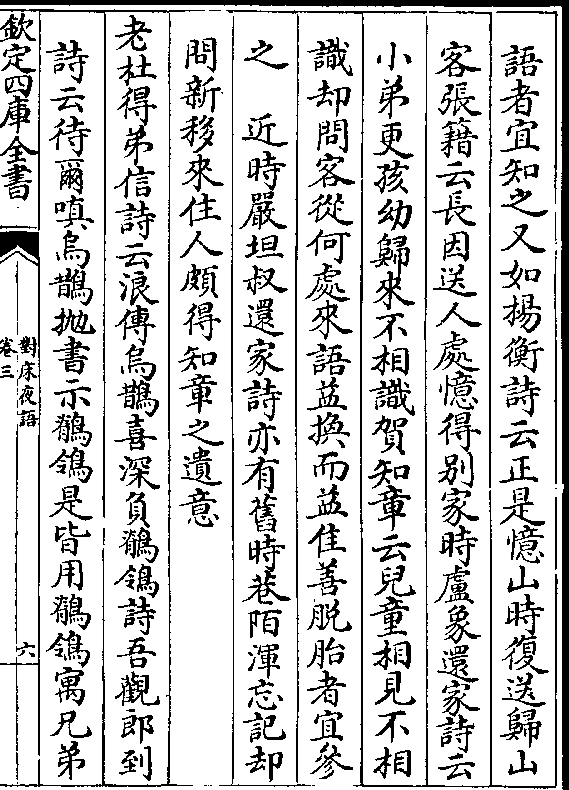 語者宜知之又如揚衡詩云正是憶山時復送歸山
客張籍云長因送人處憶得别家時盧象還家詩云
小弟更孩幼歸來不相識賀知章云兒童相見不相
識却問客從何處來語益換而益佳善脱胎者宜參
之　近時嚴坦叔還家詩亦有舊時巷陌渾忘記却
問新移來住人頗得知章之遺意
老杜得弟信詩云浪傳烏鵲喜深負鶺鴒詩吾觀郎到
詩云待爾嗔烏鵲抛書示鶺鴒是皆用鶺鴒寓兄弟
欽定四庫全書
對床夜語
卷三
六